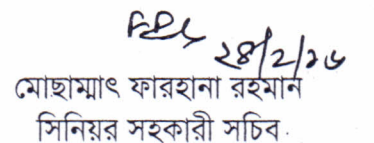 ২৪/২/২৬
মোছাম্মাৎ ফারহানা রহমান
সিনিয়র সহকারী সচিব.